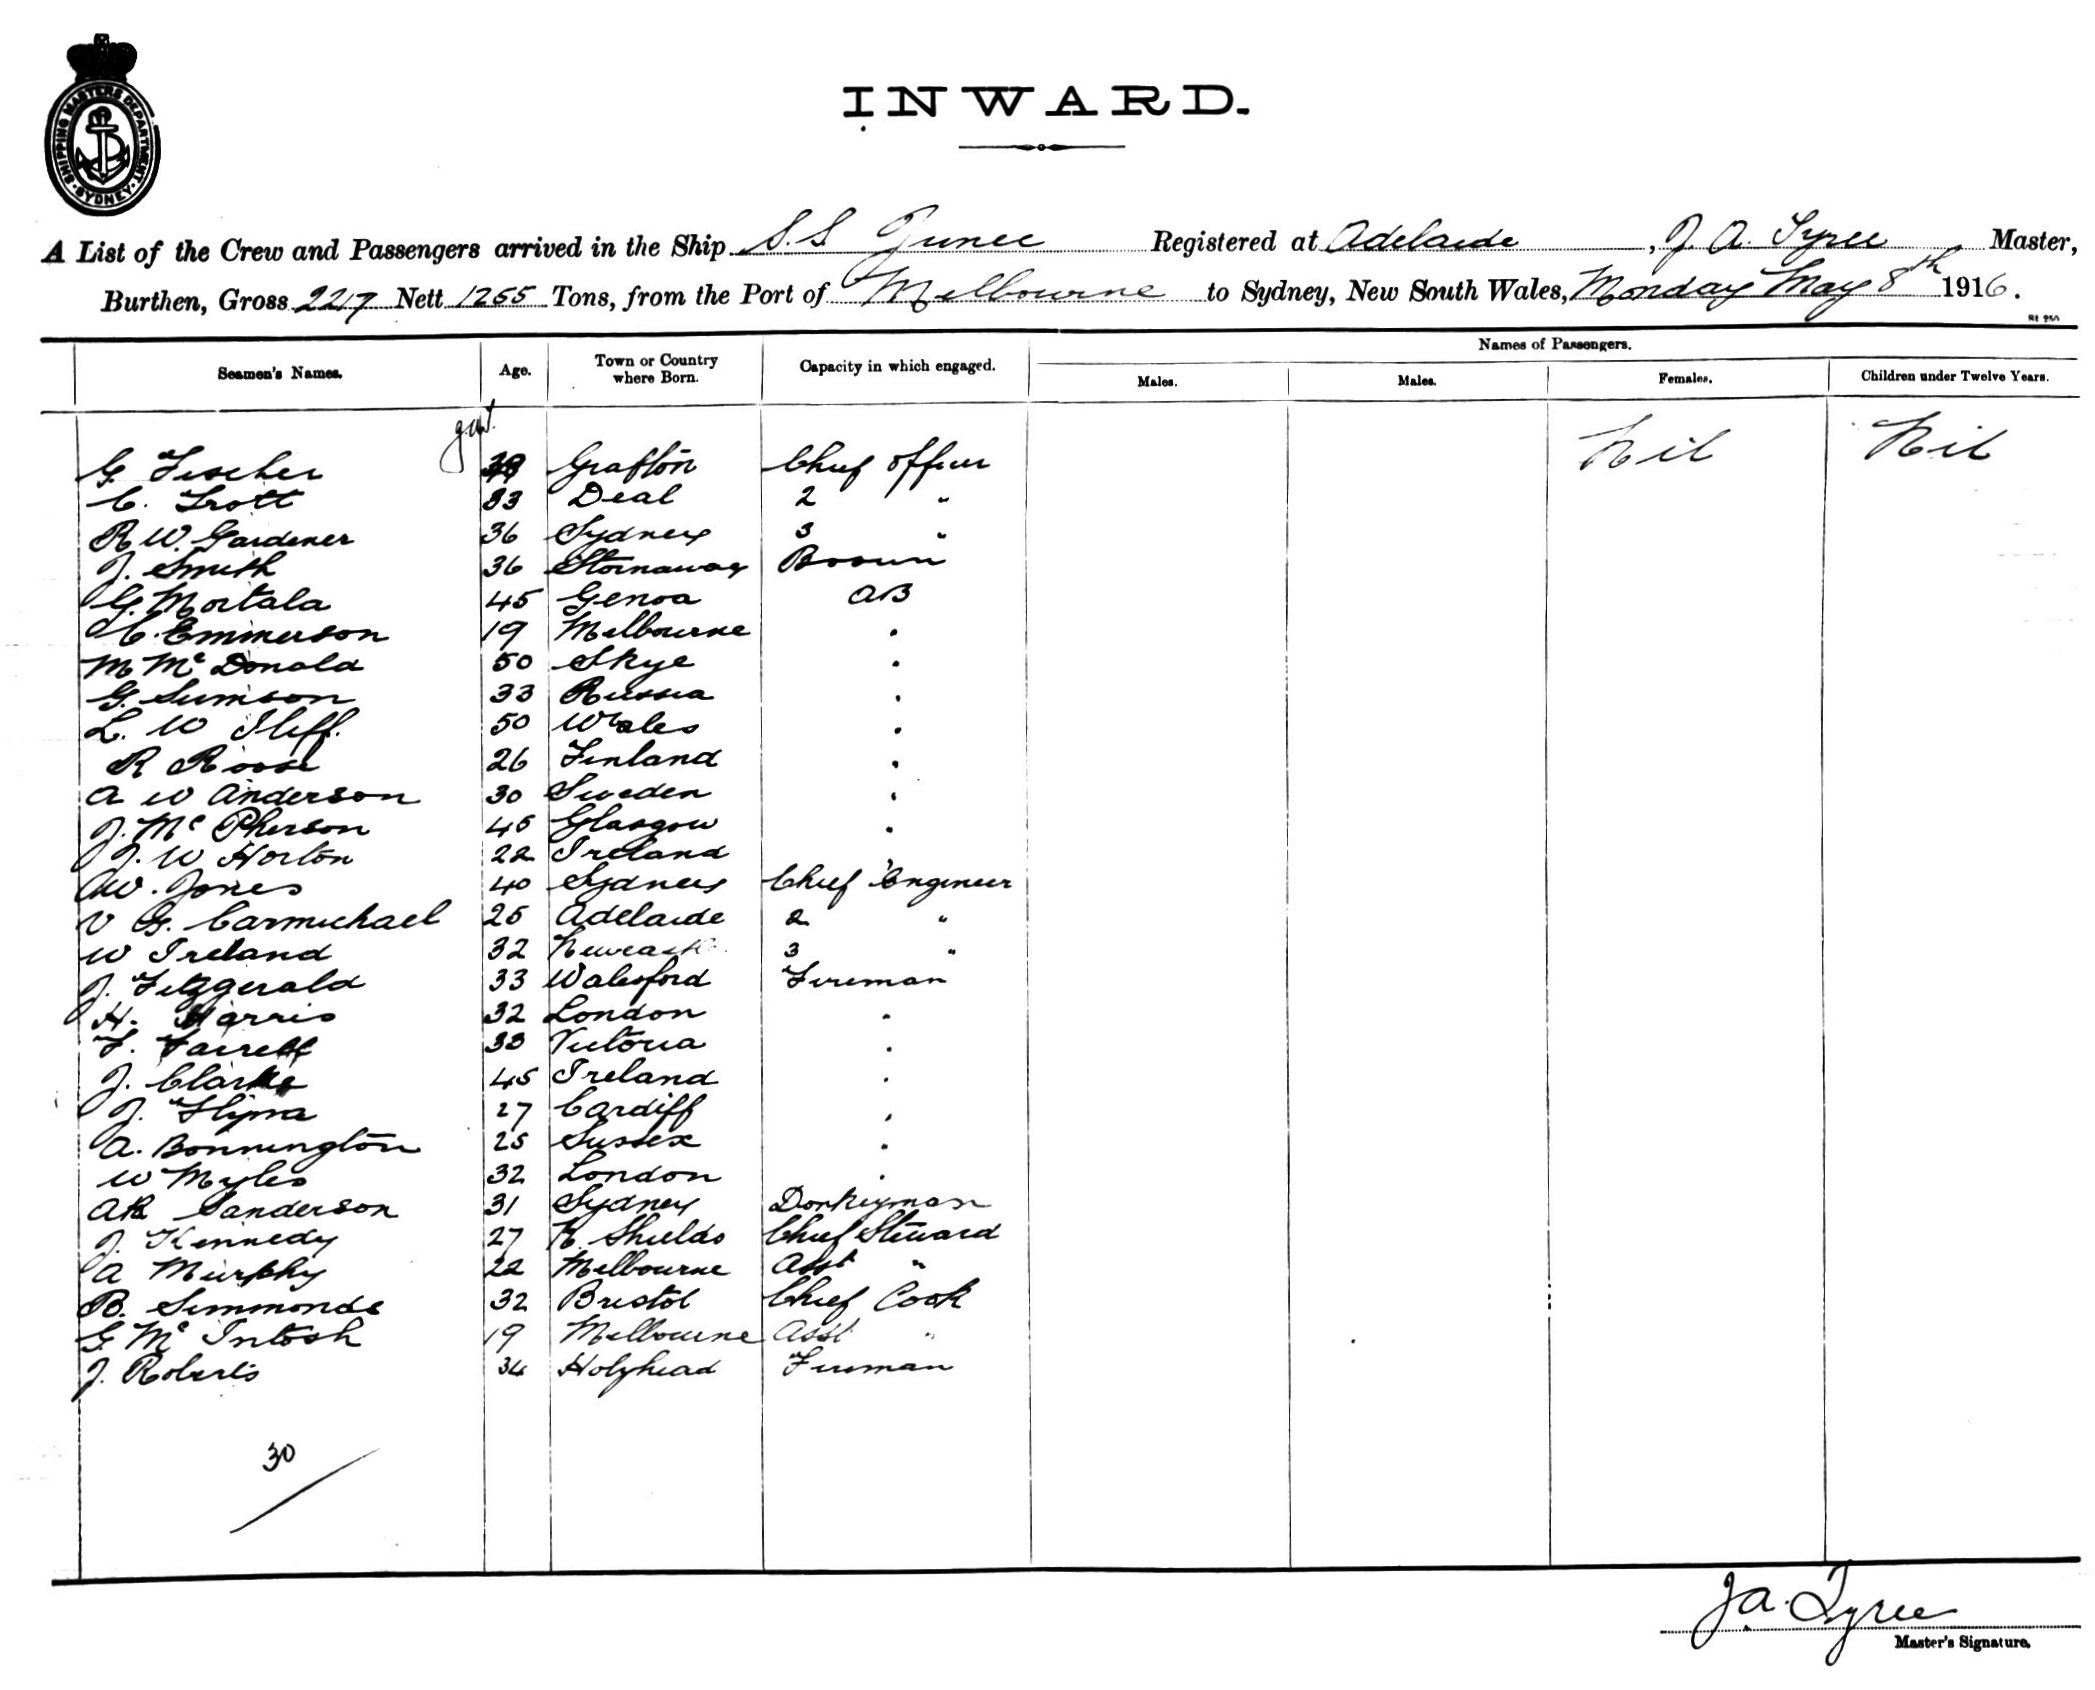 SHIPPING MASTERS DEPARTMENT. SYDNEY
INWARD.
A List of the Crew and Passengers arrived in the Ship S.S Junee Registered at Adelaide, J. A. Tyree Master,
Burthen, Gross 2217 Nett 1255 Tons, from the Port of Melbourne to Sydney, New South Wales, Monday May 8th 1916.
Seamen's Names. Age. Town or Country where Born. Capacity in which engaged. Names of Passengers.
Males. Males. Females. Children under Twelve Years.
Nil Nil
G. Fischer Grafton Chief Officer
C. Trott 33 Deal 2 "
R W. Gardener 36 Sydney 3 "
J. Smith 36 Stornaway Bosun
G. Mortala 45 Genoa AB
C. Emmerson 19 Melbourne "
M McDonald 50 Skye "
G. Sumson 33 Russia "
L. W Iliff. 50 Wales "
R Roose 26 Finland "
A W Anderson 30 Sweden "
J. McPherson 45 Glasgow "
J. W Horton 22 Ireland
AW. Jones 40 Sydney Chief Engineer
V G. Carmichael 25 Adelaide 2 "
W Ireland 32 3 "
J. Fitzgerald 33 Waterford Fireman
H. Harris 32 London "
F. Farrell 33 Victoria "
J. Clarke 45 Ireland "
J. 27 Cardiff "
A. Bonnington 25 Sussex "
W Myles 32 London "
AR Sanderson 31 Sydney Donkeyman
J. Kennedy 27 N. Shields Chief Steward
A Murphy 22 Melbourne Asst "
B. Simmonds 32 Bristol Chief Cook
G. McIntosh 19 Melbourne Asst "
J. Roberts 34 Holyhead Fireman
30
J A. Tyree
Master's Signature.